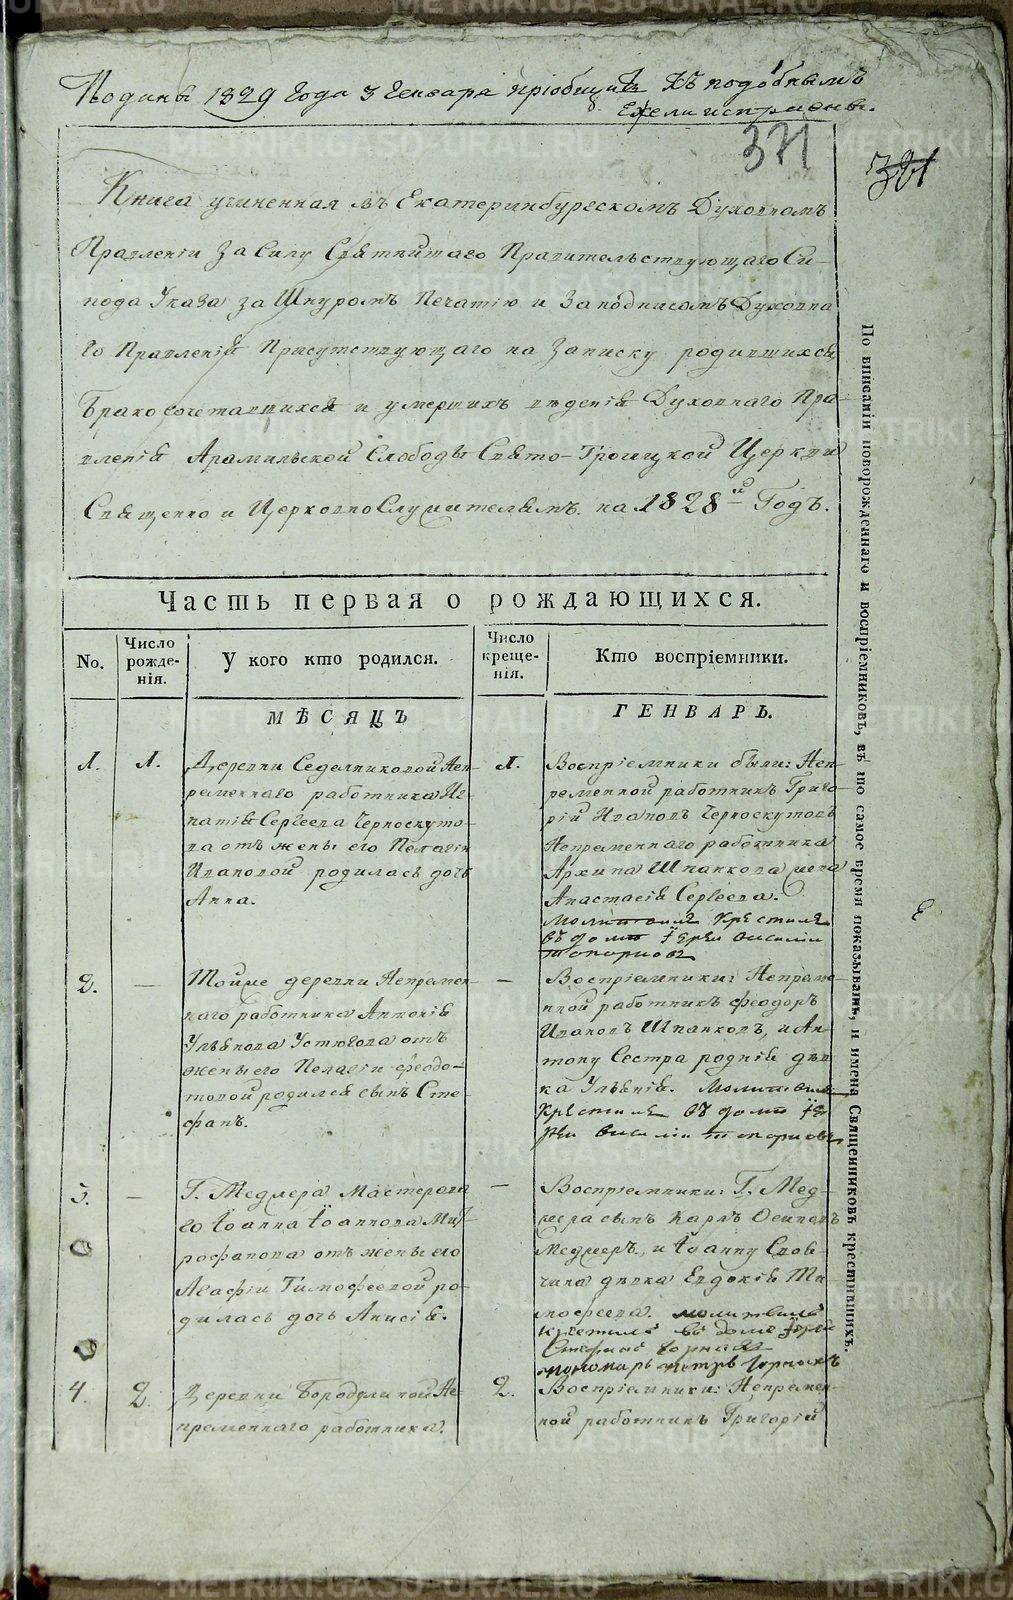 1829 Года 3 Генваря пріобщить къ подобнымъ
ежели исправны.
371
381
Книга учиненная въ Екатеринбургскомъ Духовномъ
Правленіи За Силу Святѣйшаго Правительствующаго Си-
нода Указа за Шнуромъ Печатію и Заподписомъ Духовна
го Правленія Присутствующаго на Записку родившихся
Бракосочетавшихся и умершихъ вѣденія Духовнаго Пра-
вленія Арамильской Слободы Свято-Троицкой Церкви
Священно и Церковно Служителямъ на 1828й Годъ.
Часть первая о рождающихся.
No.
Число рожде-нія.
У кого кто родился.
Число креще-нія.
Кто воспріемники.
МѢСЯЦЪ
ГЕНВАРЬ.
1.
1.
Деревни Седелниковой Неп-
ременнаго работника Иг-
натія Сергѣева Черноскуто-
ва отъ жены его Пелагіи
Ивановой родилась дочь
Анна.
1.
Воспріемники были: Неп-
ременной работникъ Григо-
рій Ивановъ Черноскутовъ
Непременнаго работника
Архипа Шпанкова жена
Анастасія Сергѣева.
Молитвилъ крестилъ
въ доме Іерей Василіи
Топорковъ
2.
—
Тойже деревни Непремен-
наго работника Антонія
Ульянова Устюгова отъ
жены его Пелагіи Ѳеодо-
товой родился сынъ Сте-
фанъ.
—
Воспріемники: Непреме-
нной работникъ Ѳеодоръ
Ивановъ Шпанковъ, и Ан-
тону Сестра родная дѣв-
ка Ульянія. Молитвилъ
Крестилъ въ доме Іе-
рей Василіи Топорковъ
3.
—
Г. Меджера Мастероваго
Іоанна Іоаннова Мит-
рофанова отъ жены его
Агафіи Тимофеевой ро-
дилась дочь Анисія.
—
Воспріемники: Г. Мед-
жера сынъ Карлъ Осиповъ
Меджеръ, и Іоанну Своя-
чина дѣвка Евдокія Ти-
мофеева. молитвилъ
крестилъ въ доме Іерей
Стефанъ
пономарь Петръ
4.
2.
Деревни Бородулиной Не-
пременнаго работника
2.
Воспріемники: Непремен-
ной работникъ Григорій
По вписаніи новорожденнаго и воспріемниковъ, въ то самое время показывать, и имена Священниковъ крестившихъ.
METRIKI.GASO-URAL.RU